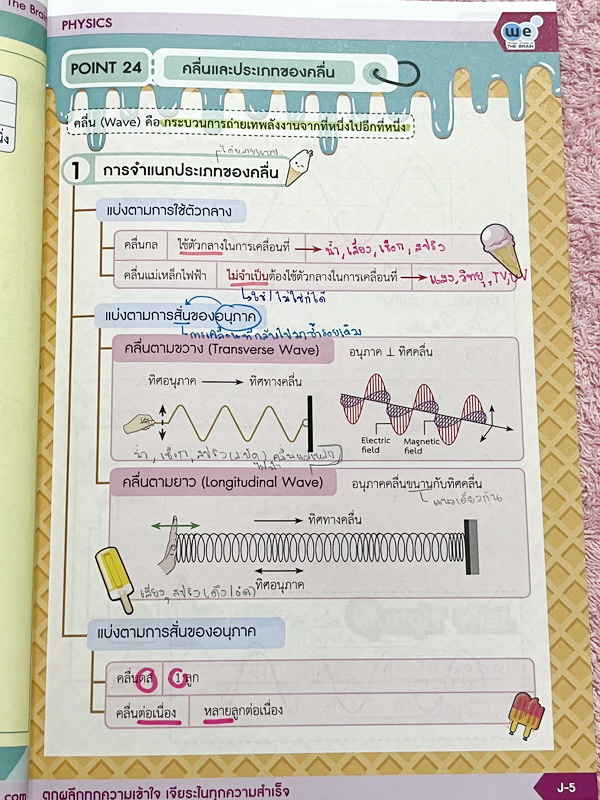 The Brain
PHYSICS
we
THE BRAIN
POINT 24
คลื่นและประเภทของคลื่น
คลื่น (Wave) คือ กระบวนการถ่ายเทพลังงานจากที่หนึ่งไปอีกที่หนึ่ง
1 การจำแนกประเภทของคลื่น
แบ่งตามการใช้ตัวกลาง
คลื่นกล ใช้ตัวกลางในการเคลื่อนที่ → น้ำ, เสียง, เชือก, สปริง
คลื่นแม่เหล็กไฟฟ้า ไม่จำเป็นต้องใช้ตัวกลางในการเคลื่อนที่ → แสง, วิทยุ, TV, UV
ใช้/ไม่ใช้ก็ได้
แบ่งตามการสั่นของอนุภาค
การเคลื่อนที่กลับไปมาซ้ำรอยเดิม
คลื่นตามขวาง (Transverse Wave) อนุภาค ⊥ ทิศคลื่น
ทิศอนุภาค → ทิศทางคลื่น
Electric field
Magnetic field
น้ำ, เชือก, สปริง (สะบัด) คลื่นแม่เหล็ก
ไฟฟ้า
คลื่นตามยาว (Longitudinal Wave) อนุภาคคลื่นขนานกับทิศคลื่น
แนวเดียวกัน
ทิศทางคลื่น
ทิศอนุภาค
เสียง, สปริง (ดึง/อัด)
แบ่งตามการสั่นของอนุภาค
คลื่นดล 1 ลูก
คลื่นต่อเนื่อง หลายลูกต่อเนื่อง
com
ตกผลึกทุกความเข้าใจ เจียระไนทุกความสำเร็จ
J-5